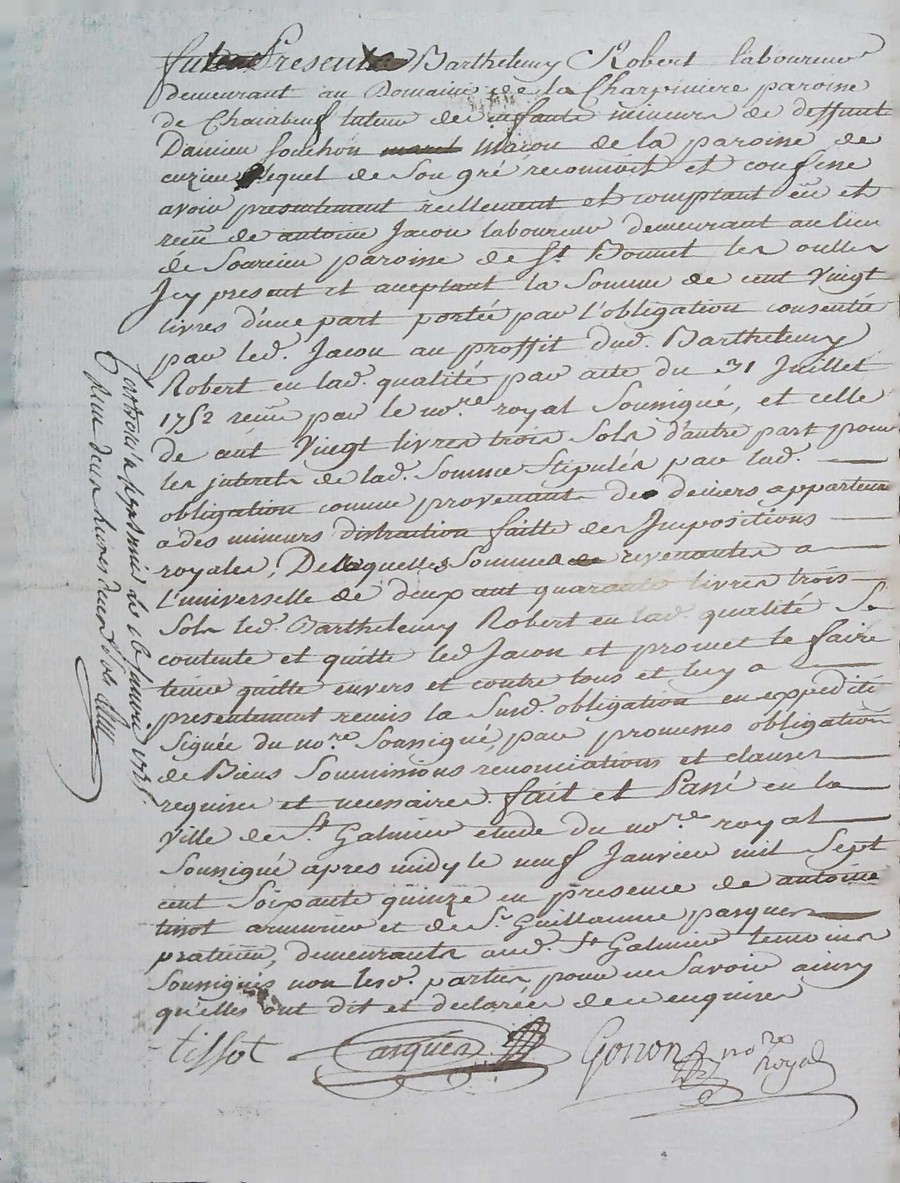 Barthelemy Robert laboureur
demeurant au Domaine de la Charpiniere paroisse
de Chambeuf tuteur des enfants mineurs de deffunt
Damien Souchon Maçon de la paroisse de
cuzieu lequel de Son gré reconnoit et confesse
avoir presentement reellement et comptant eü et
reçü de antoine Jacon laboureur demeurant au lieu
de Sourcieu paroisse de St. Bonnet les oulles
Icy present et aceptant la Somme de cent Vingt
livres d'une part portée par l'obligation consentée
par led. Jacon au proffit dud. Barthelemy
Robert en lad. qualité par acte du 31 Juillet
1752 reçu par le nore. royal Soussigné, et celle
de cent Vingt livres trois Sols d'autre part pour
les interets de lad. Somme Stipulés par lad.
obligation comme provenant des deniers appartena
a des mineurs distraction faitte des Impositions
royales, Desquelles Sommes revenantes a
l'universelle de deux cent quarante livres trois
Sols led. Barthelemy Robert en lad. qualité Se
contente et quitte led Jacon et promet le faire
tenir quitte envers et contre tous et luy a
presentement remis la Susd. obligation en expedité
Signée du nore. Soussigné, par promesses obligation
de Biens Soumissions renonciations et clauses
requises et necessaires. fait et Passé en la
Ville de St. Galmier etude du nore. royal
Soussigné apres midy le neuf Janvier mil Sept
cent Soixante quinze en presence de antoine
tissot armurier et de Sr. Guillaume pasquer
praticien, demeurants aud. St Galmier temoins
Soussignés non lesd. parties, pour ne Savoir ainsy
qu'elles ont dit et declarées de ce enquises
tissot Pasquer Gonon nore
royal